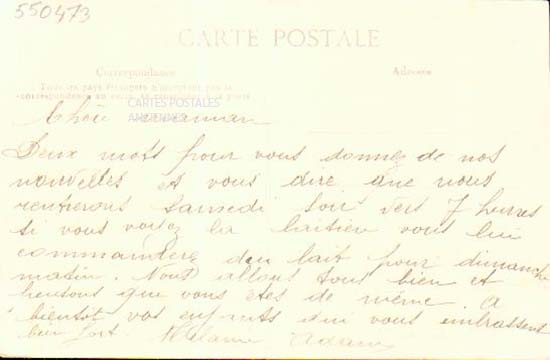 550473
CARTE POSTALE
Correspondance
Adresse
Tous les pays étrangers n'acceptent pas la
correspondance au
CARTES POSTALES
ANCIENNES
Chère maman
Deux mots pour vous donnez de nos
nouvelles et vous dire que nous
rentrerons samedi soir vers 7 hures
si vous voitez la laitien vous lui
commanderez deu lait pour dimanche
matin. Nous allons tous bien et
pensons que vous êtes de même. A
bientot vos enfants qui vous embrassent
bien fort